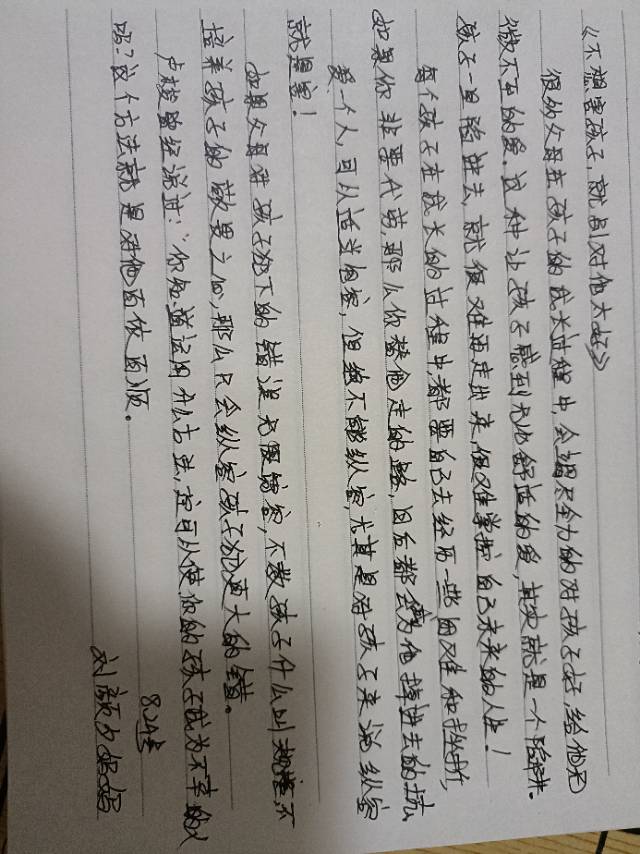 《不想害孩子，就别对他太好》
很多父母在孩子的成长过程中，会竭尽全力的对孩子好，给他无
微不至的爱。这种让孩子感到无比舒适的爱，其实就是一个陷阱。
孩子一旦陷进去，就很难再走出来，很难掌握自己未来的人生！
每个孩子在成长的过程中，都要自己去经历一些困难和挫折，
如果你非要代劳，那么你替他走的路，日后都会成为他掉进去的坑
爱一个人，可以适当包容，但绝不能纵容，尤其是对孩子来说纵容
就是害！
如果父母对孩子犯下的错误无限宽容，不教孩子什么叫规矩，不
培养孩子的敬畏之心，那么只会纵容孩子犯更大的错。
卢梭曾经说过：“你知道运用什么方法，定可以使你的孩子成为不幸的人
吗？这个方法就是对他百依百顺。
824号
刘颜夕妈妈